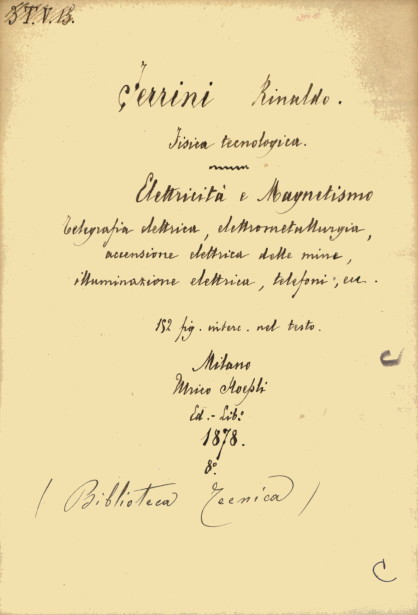 3 T.V. 13.
Ferrini Rinaldo.
Fisica tecnologica.
Elettricità e Magnetismo
Telegrafia elettrica, elettrometallurgia,
accensione elettrica delle mine,
illuminazione elettrica, telefoni, ecc.
152 fig. interc. nel testo.
Milano
Ulrico Hoepli
Ed. - Lib.
1878.
8°.
(Biblioteca Tecnica)
C